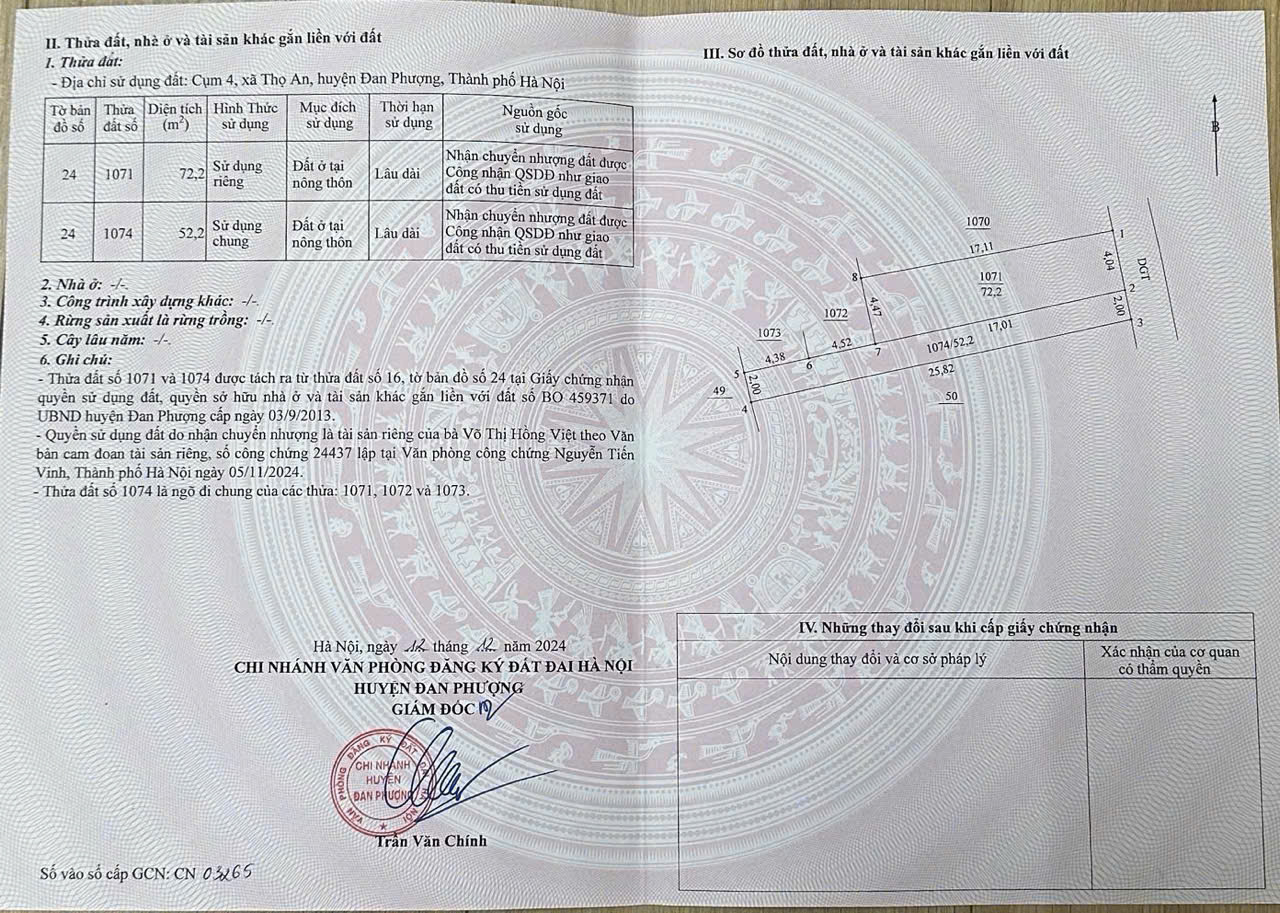 II. Thửa đất, nhà ở và tài sản khác gắn liền với đất
1. Thửa đất:
- Địa chỉ sử dụng đất: Cụm 4, xã Thọ An, huyện Đan Phượng, Thành phố Hà Nội
Tờ bản đồ số | Thửa đất số | Diện tích (m²) | Hình Thức sử dụng | Mục đích sử dụng | Thời hạn sử dụng | Nguồn gốc sử dụng
24 | 1071 | 72,2 | Sử dụng riêng | Đất ở tại nông thôn | Lâu dài | Nhận chuyển nhượng đất được Công nhận QSDĐ như giao đất có thu tiền sử dụng đất
24 | 1074 | 52,2 | Sử dụng chung | Đất ở tại nông thôn | Lâu dài | Nhận chuyển nhượng đất được Công nhận QSDĐ như giao đất có thu tiền sử dụng đất
2. Nhà ở: -/-.
3. Công trình xây dựng khác: -/-.
4. Rừng sản xuất là rừng trồng: -/-.
5. Cây lâu năm: -/-.
6. Ghi chú:
- Thửa đất số 1071 và 1074 được tách ra từ thửa đất số 16, tờ bản đồ số 24 tại Giấy chứng nhận
quyền sử dụng đất, quyền sở hữu nhà ở và tài sản khác gắn liền với đất số BO 459371 do
UBND huyện Đan Phượng cấp ngày 03/9/2013.
- Quyền sử dụng đất do nhận chuyển nhượng là tài sản riêng của bà Võ Thị Hồng Việt theo Văn
bản cam đoan tài sản riêng, số công chứng 24437 lập tại Văn phòng công chứng Nguyễn Tiến
Vinh, Thành phố Hà Nội ngày 05/11/2024.
- Thửa đất số 1074 là ngõ đi chung của các thửa: 1071, 1072 và 1073.
Hà Nội, ngày 12 tháng 12 năm 2024
CHI NHÁNH VĂN PHÒNG ĐĂNG KÝ ĐẤT ĐAI HÀ NỘI
HUYỆN ĐAN PHƯỢNG
GIÁM ĐỐC
VĂN PHÒNG ĐĂNG KÝ ĐẤT ĐAI HÀ NỘI
CHI NHÁNH
HUYỆN
ĐAN PHƯỢNG
Trần Văn Chính
Số vào sổ cấp GCN: CN 03265
III. Sơ đồ thửa đất, nhà ở và tài sản khác gắn liền với đất
B
1070
1
17,11
4,04
DGT
8
1071
72,2
2
4,47
2,00
1072
17,01
3
1073
4,52
7
1074/52,2
4,38
6
25,82
5
2,00
49
4
50
IV. Những thay đổi sau khi cấp giấy chứng nhận
Nội dung thay đổi và cơ sở pháp lý | Xác nhận của cơ quan có thẩm quyền